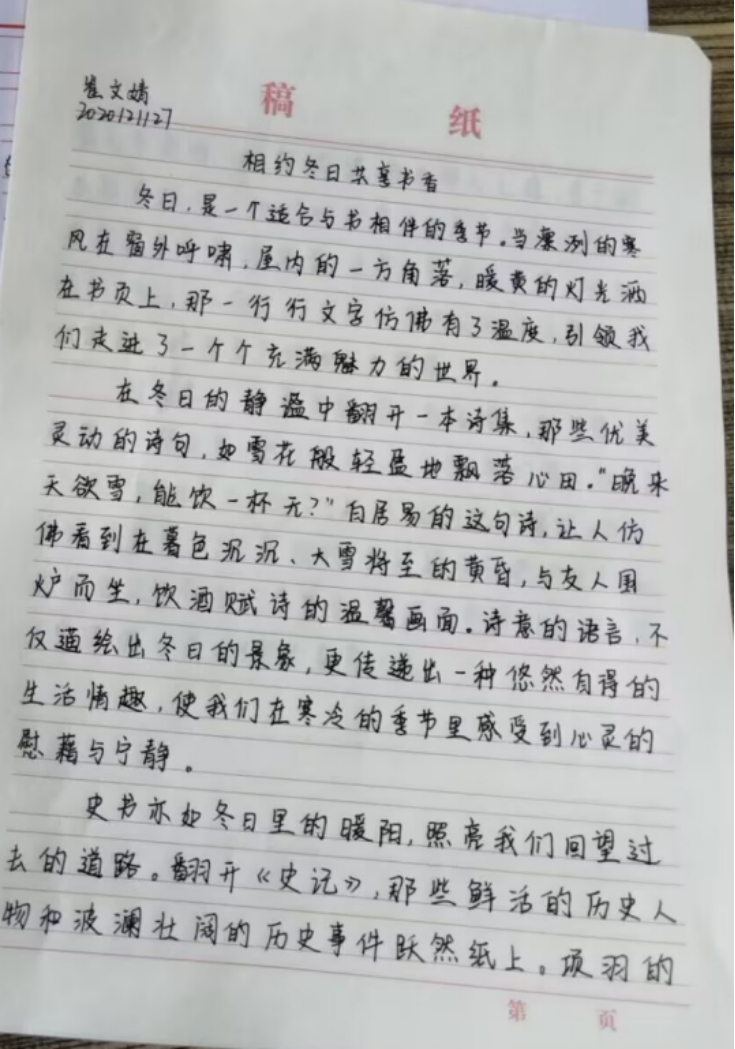 崔文婧
2020121127
稿 纸
相约冬日共享书香
冬日，是一个适合与书相伴的季节。当凛冽的寒
风在窗外呼啸，屋内的一方角落，暖黄的灯光洒
在书页上，那一行行文字仿佛有了温度，引领我
们走进了一个个充满魅力的世界。
在冬日的静谧中翻开一本诗集，那些优美
灵动的诗句，如雪花般轻盈地飘落心田。"晚来
天欲雪，能饮一杯无？"白居易的这句诗，让人仿
佛看到在暮色沉沉、大雪将至的黄昏，与友人围
炉而坐，饮酒赋诗的温馨画面。诗意的语言，不
仅描绘出冬日的景象，更传递出一种悠然自得的
生活情趣，使我们在寒冷的季节里感受到心灵的
慰藉与宁静。
史书亦如冬日里的暖阳，照亮我们回望过
去的道路。翻开《史记》，那些鲜活的历史人
物和波澜壮阔的历史事件跃然纸上。项羽的
第 页